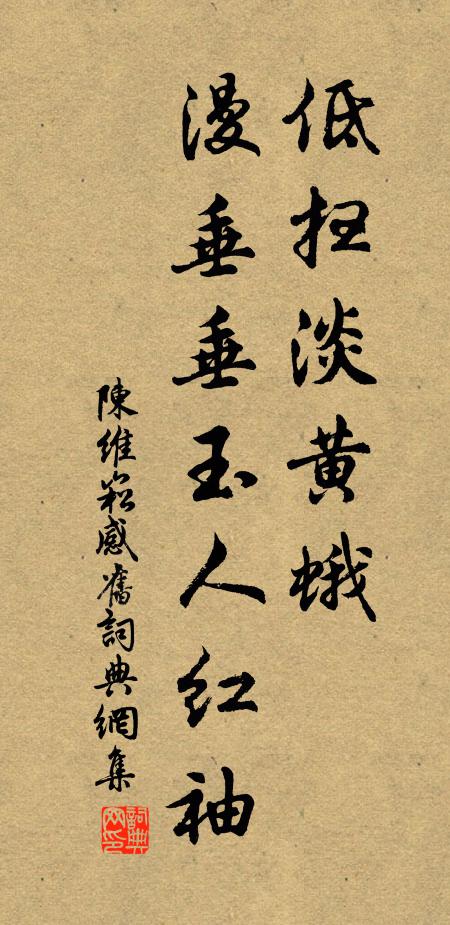 低扫淡黄蛾
漫垂垂玉人红袖
陳維崧感舊詞典網集
詞典网印